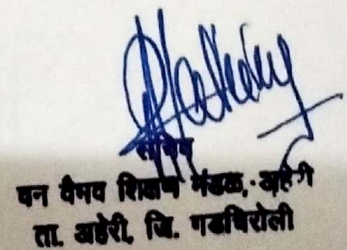 सचिव
वन वैभव शिक्षण मंडळ, अहेरी
ता. अहेरी, जि. गडचिरोली